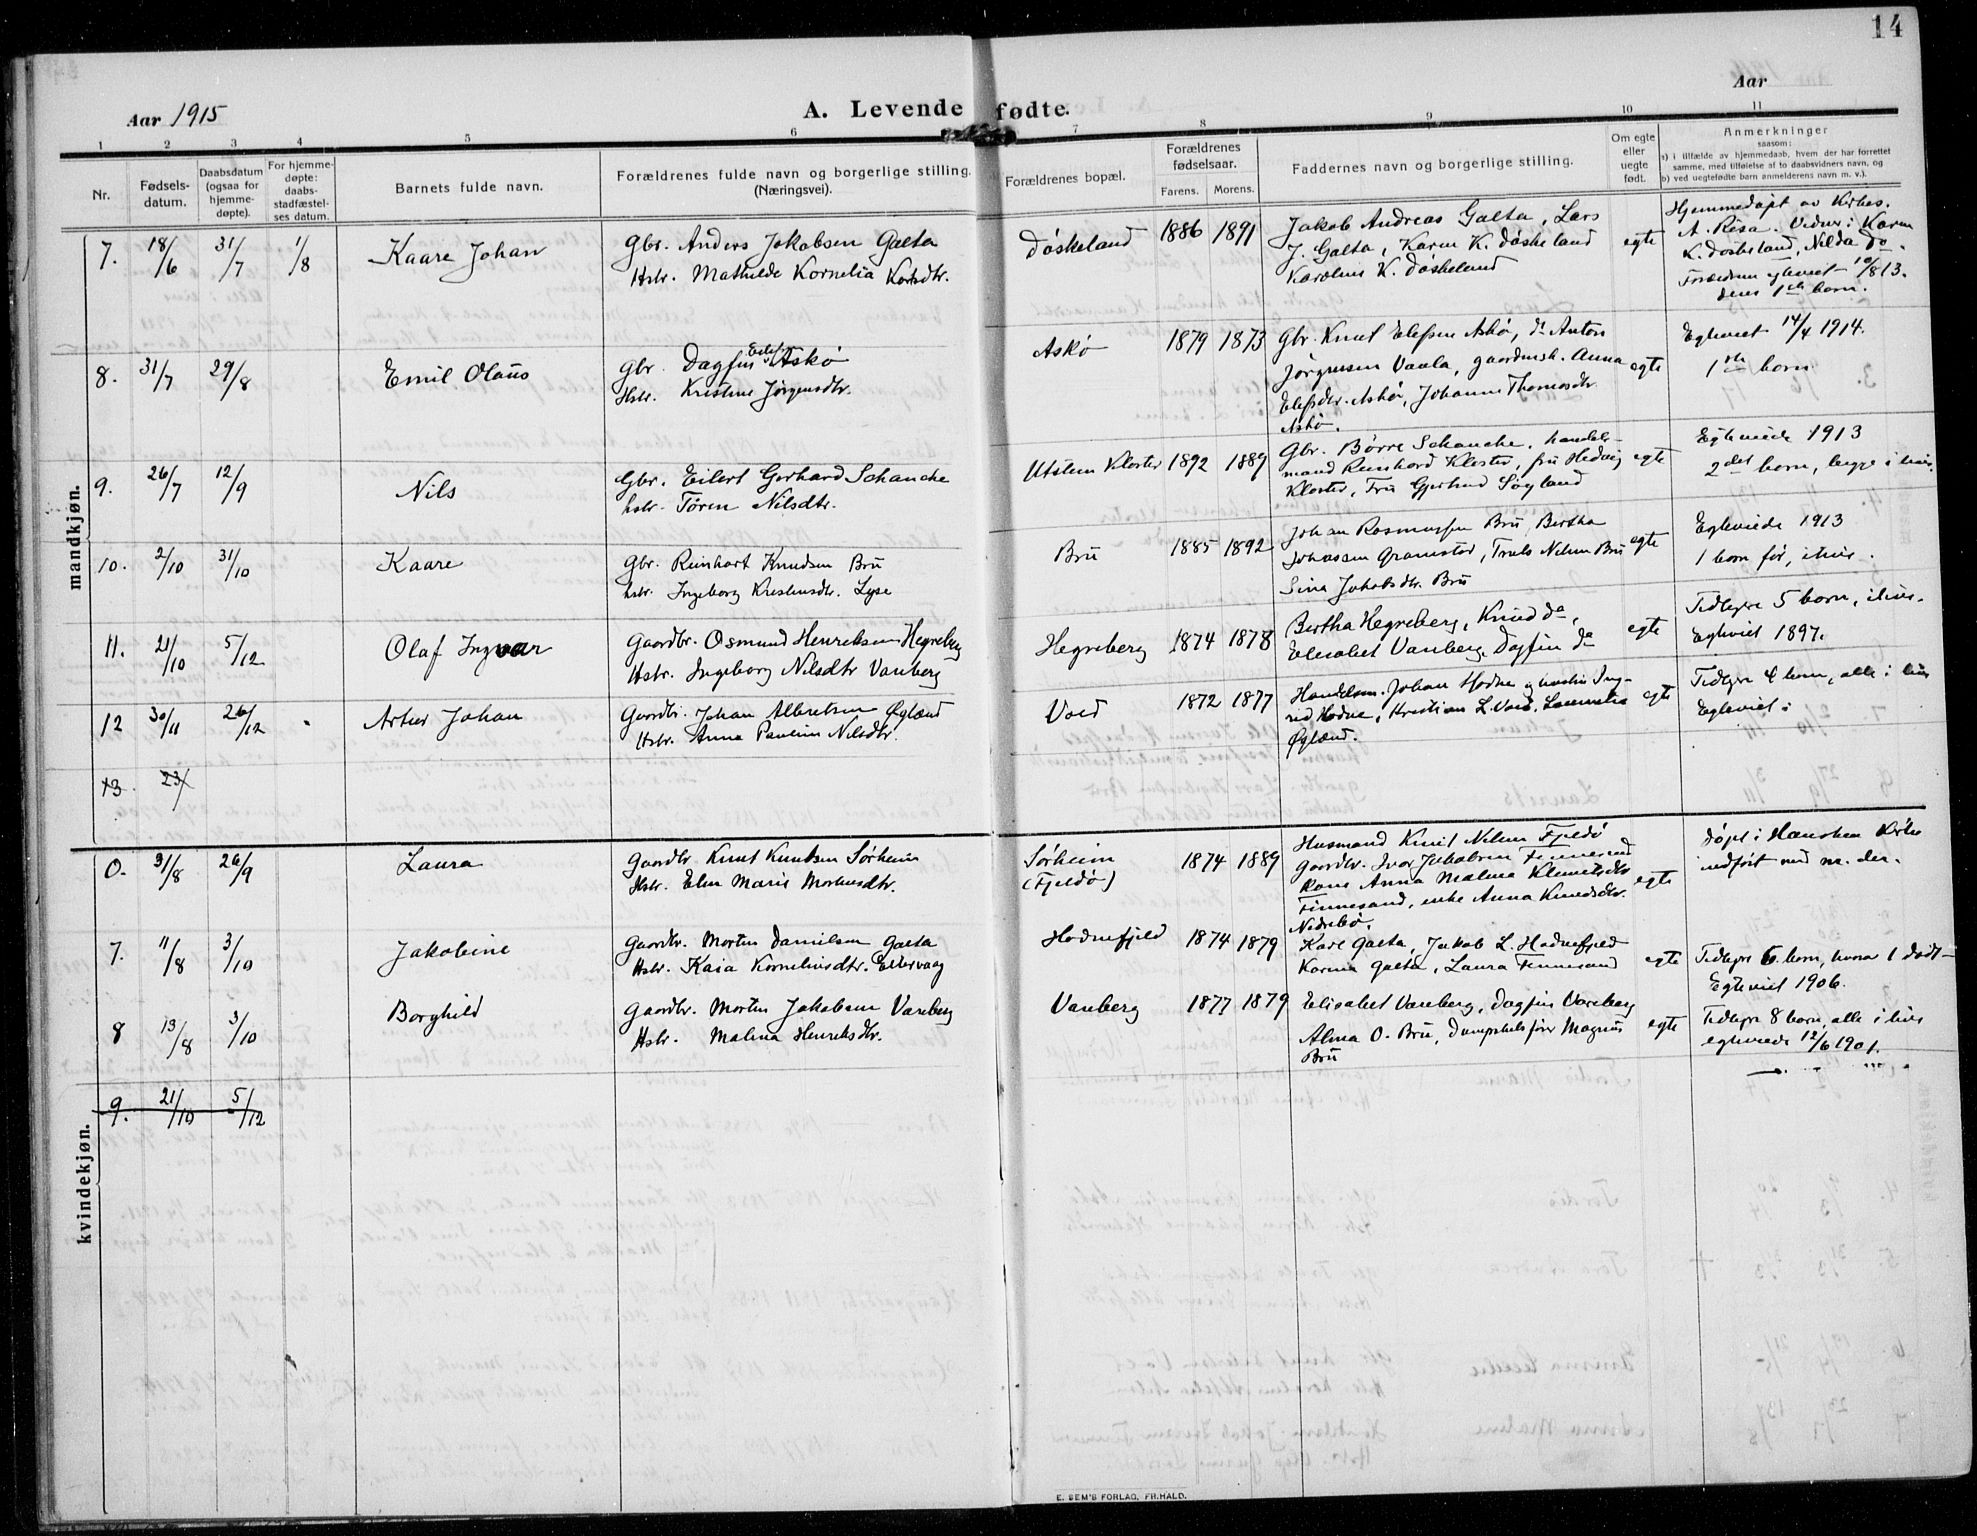 14
Aar 1915
A. Levende fødte.
Aar
1 2 3 4 5 6 7 8 9 10 11
Nr.
Fødsels-
datum.
Daabsdatum
(ogsaa for
hjemme-
døpte).
For hjemme-
døpte:
daabs-
stadfæstel-
ses datum.
Barnets fulde navn.
Forældrenes fulde navn og borgerlige stilling.
(Næringsvei).
Forældrenes bopæl.
Forældrenes
fødselsaar.
Farens. Morens.
Faddernes navn og borgerlige stilling.
Om egte
eller
uegte
født.
Anmerkninger
saasom:
a) i tilfælde av hjemmedaab, hvem der har forrettet
samme, med tilføielse af to daabsvidners navn, og
b) ved uegtefødte barn anmelderens navn m. v.).
mandkjøn.
7. 18/6 31/7 1/8 Kaare Johan
Gbr. Anders Jakobsen Galta
Hstr. Mathilde Kornelia Korlsdtr.
Døskeland 1886 1891
Jakob Andreas Galta, Lars
J. Galta, Karen K. Døskeland
Karoline K. Døskeland
egte
Hjemmedøpt av Kirkes.
A. Resa. Vidner: Karen
K. Døskeland, Nilda do.
Forældrene egteviet 10/8 13.
deres 1ste barn.
8. 31/7 29/8 Emil Olaus
Gbr. Dagfin Elefs. Askø
Hstr. Kristine Jørgensdtr.
Askø 1879 1873
Gbr. Knut Elefsen Askø, do Anton
Jørgensen Vaula, gaardmsk. Anna
Elefsdtr. Askø, Johanne Thomasdtr
Askø.
egte
Egteviet 14/4 1914.
1ste barn
9. 26/7 12/9 Nils
Gbr. Eilert Gerhard Schanche
hstr. Tøren Nilsdtr.
Utstein Kloster 1892 1889
Gbr. Børre Schanche, handels-
mand Reinhard Kloster, fru Hedvig
Kloster, Fru Gjertrud Søyland
egte
Egteviede 1913
2det barn, begge i live.
10. 2/10 31/10 Kaare
Gbr. Reinhart Knudsen Bru
hstr. Ingeborg Kristensdtr. Lyse
Bru 1885 1892
Johan Rasmussen Bru, Bertha
Johansen Gramstad, Truls Nilsen Bru
Sina Jakobsdtr. Bru
egte
Egteviede 1913
1 barn før, i live.
11. 21/10 5/12 Olaf Ingvar
Gaardbr. Osmund Henriksen Hegreberg
Hstr. Ingeborg Nilsdtr Vareberg
Hegreberg 1874 1878
Bertha Hegreberg, Knud do,
Elisabet Vareberg, Dagfin do
egte
Tidligre 5 barn, i live.
Egteviet 1897.
12 30/11 26/12 Artur Johan
Gaardbr. Johan Albretsen Øglænd
Hstr. Anna Pauline Nilsdtr.
Void 1872 1877
Handelsm. Johan Hodne og hustru Ing-
rid Hodne, Kristian L. Void,
Øglænd.
egte
Tidligre 4 barn, alle i live
Egteviet i
13. 23/
kvindekjøn.
0. 31/8 26/9 Laura
Gaardbr Knut Knutsen Sørheim
Hstr. Elen Marie Mortensdtr.
Sørheim
(Fjeldø)
1874 1889
Husmand Knut Nilsen Fjeldø
Gaardbr. Ivar Jakobsen Finnesand
Kone Anna Malena Klemetsdtr
Finnesand, enke Anna Knudsdtr.
Nedrebø.
egte
døpt i Hausken Kirke
indført med nr. der.
7. 11/8 3/10 Jakobine
Gaardbr. Morten Danielsen Galta
Hstr. Kaia Korneliusdtr. Eltervaag
Hodnefjeld 1874 1879
Karl Galta, Jakob L. Hodnefjeld
Karina Galta, Laura Finnesand
egte
Tidligre 6 barn, hvorav 1 dødt
Egteviet 1906.
8 13/8 3/10 Borghild
Gaardbr. Morten Jakobsen Vareberg
Hstr. Malena Henriksdtr.
Vareberg 1877 1879
Elisabet Vareberg, Dagfin Vareberg
Alma O. Bru, Dampskibsfører Magnus
Bru
egte
Tidligre 8 barn, alle i live
egteviede 12/6 1901.
9. 21/10 5/12
E. SEM'S FORLAG, FR.HALD.